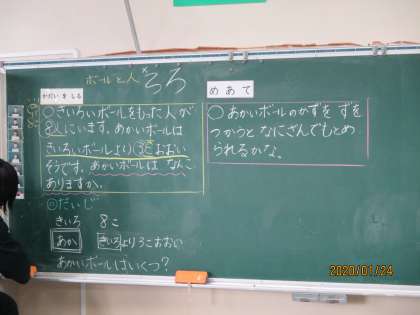 ボールと人 そろ
かだいをしる
○きいろいボールをもった人が
8人います。あかいボールは
きいろいボールより③こおおい
そうです。あかいボールは なんこ
ありますか。
めあて
○あかいボールのかずを ずを
つかうと なにざんでもとめ
られるかな。
だいじ
きいろ 8こ
あか きいろより3こおおい
あかいボールはいくつ?
2020/01/24